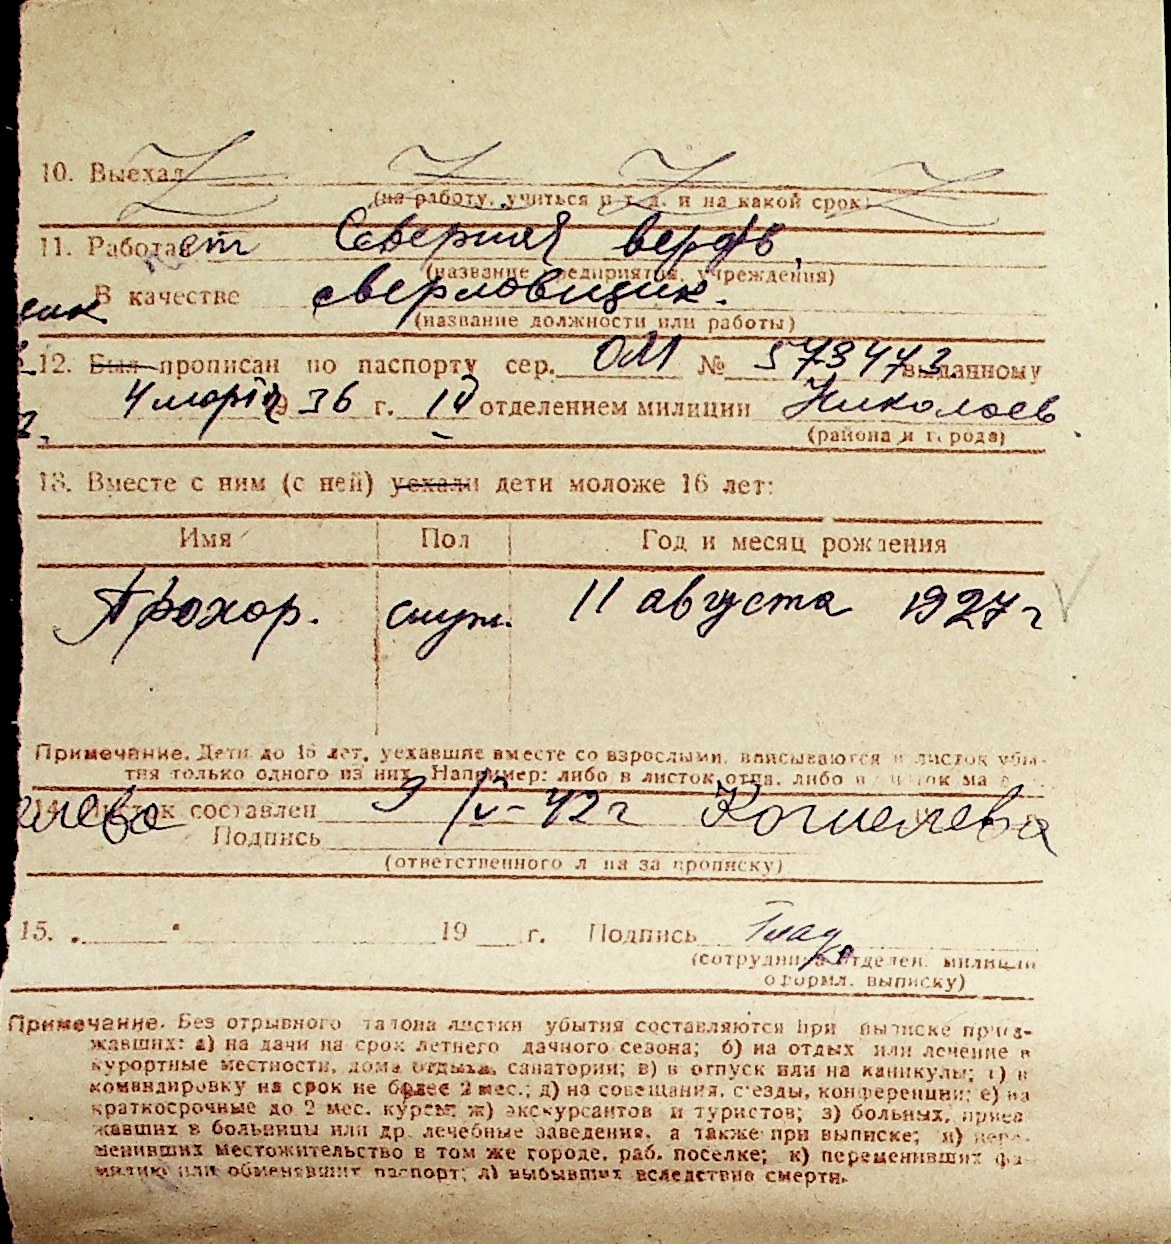 10. Выехал
(на работу, учиться и т. д. и на какой срок)
11. Работает Северная верфь,
(название предприятия, учреждения)
В качестве сверловщик.
(название должности или работы)
12. Был прописан по паспорту сер. ОМ № 573473 выданному
4 марта 1936 г. 10 отделением милиции Николаев
(района и города)
13. Вместе с ним (с ней) уехали дети моложе 16 лет:
Имя Пол Год и месяц рождения
Прохор. муж. 11 августа 1927 г
Примечание. Дети до 16 лет, уехавшие вместе со взрослыми, вписываются в листок убы-
тия только одного из них. Например: либо в листок отца, либо в листок ма
14. Листок составлен 9/IV-42 г Кошелева
Подпись
(ответственного лица за прописку)
15. „ “ 19 г. Подпись
(сотрудника отделен. милиции
оформл. выписку)
Примечание. Без отрывного талона листки убытия составляются при выписке приез-
жавших: а) на дачи на срок летнего дачного сезона; б) на отдых или лечение в
курортные местности, дома отдыха, санатории; в) в отпуск или на каникулы; г) в
командировку на срок не более 2 мес.; д) на совещания, съезды, конференции; е) на
краткосрочные до 2 мес. курсы; ж) экскурсантов и туристов; з) больных, приез
жавших в больницы или др. лечебные заведения, а также при выписке; и) пере-
менивших местожительство в том же городе, раб. поселке; к) переменивших фа-
милию или обменявших паспорт; л) выбывших вследствие смерти.